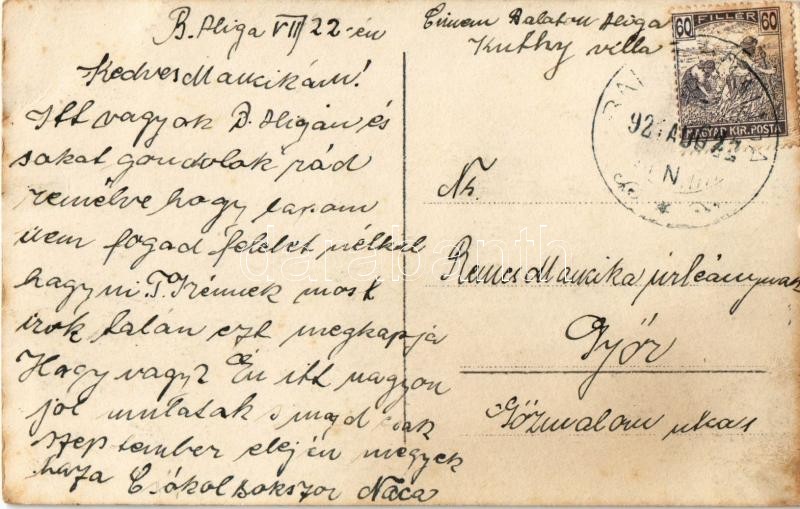 B. Aliga VII/22-én
Kedves Mancikám!
Itt vagyok B. Aligán és
sokat gondolok rád
remélve hogy
nem fogad felelet nélkül
hagyni. T. Irénnek most
irok talán ezt megkapja
Hogy vagy? Én itt nagyon
jól mulatok s majd csak
szeptember elején megyek
haza Csókol sokszor Naca
Cimem Balaton Aliga
Kuthy villa
60 FILLÉR 60
MAGYAR KIR. POSTA
921 AUG 22
Ns.
Mancika úrleánynak
Győr
Gőzmalom ukca 1
darabanth